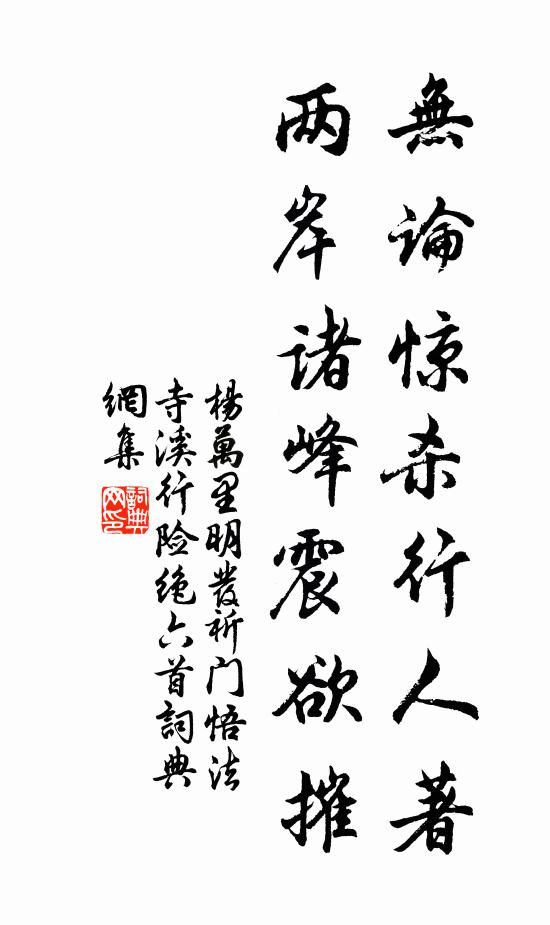 無論惊杀行人著
两岸诸峰震欲摧
楊萬里明發祈门悟法
寺溪行险绝六首詞典
網集
詞典網印